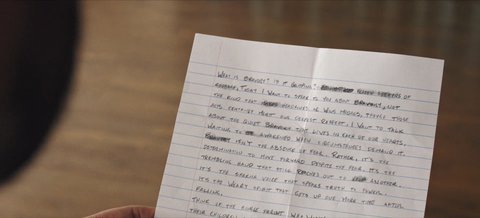 WHAT IS BRAVERY? IS IT
TODAY I WANT TO SPEAK TO YOU ABOUT BRAVERY, NOT
THE KIND THAT OR WINS MEDALS, THOUGH THOSE
ACTS CERTAINLY MERIT OUR DEEPEST RESPECT. I WANT TO TALK
ABOUT THE QUIET BRAVERY THAT LIVES IN EACH OF OUR HEARTS,
WAITING TO BE AWAKENED WHEN CIRCUMSTANCES DEMAND IT.
ISN'T THE ABSENCE OF FEAR. RATHER, IT'S THE
DETERMINATION TO MOVE FORWARD DESPITE THE FEAR. IT'S THE
TREMBLING HAND THAT STILL REACHES OUT TO ANOTHER.
IT'S THE SHAKING VOICE THAT SPEAKS TRUTH TO POWER.
IT'S THE WEARY SPIRIT THAT GETS UP ONE MORE TIME AFTER
FALLING.
THINK OF THE NURSE
THEIR CHILDREN